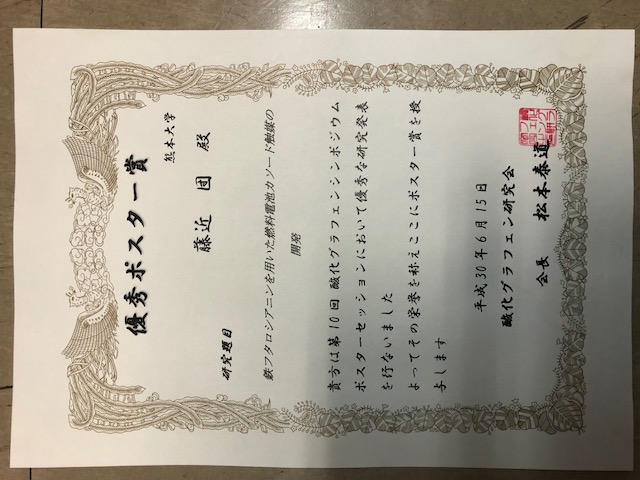 優秀ポスター賞
熊本大学
藤近 団 殿
研究題目
鉄フタロシアニンを用いた燃料電池カソード触媒の
開発
貴方は第10回 酸化グラフェンシンポジウム
ポスターセッションにおいて優秀な研究発表
を行ないました
よってその栄誉を称えここにポスター賞を授
与します
平成30年6月15日
酸化グラフェン研究会
会長 松本泰道